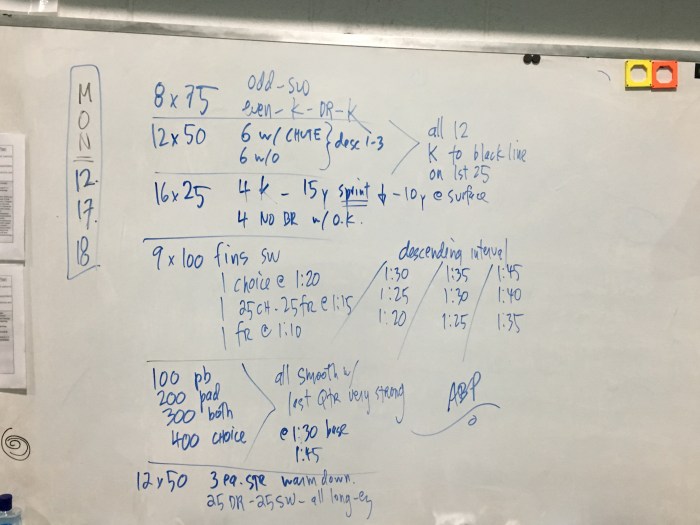 MON
12.
17.
18
8 x 75 odd - SW
even - K - DR - K
12 x 50 6 w/ CHUTE } desc 1-3
6 w/o
all 12
K to black line
on 1st 25
16 x 25 4 K - 15y sprint ↓ - 10y @ surface
4 NO BR w/ O.K.
9 x 100 fins SW
1 choice @ 1:20
1 25CH - 25fr @ 1:15
1 fR @ 1:10
descending interval
1:30 1:35 1:45
1:25 1:30 1:40
1:20 1:25 1:35
100 pb
200 pad
300 both
400 choice
all smooth w/
last Qtr very strong
@ 1:30 base
1:45
ABP
12 x 50 3 ea. STR warm down.
25 DR - 25 SW - all long - ez